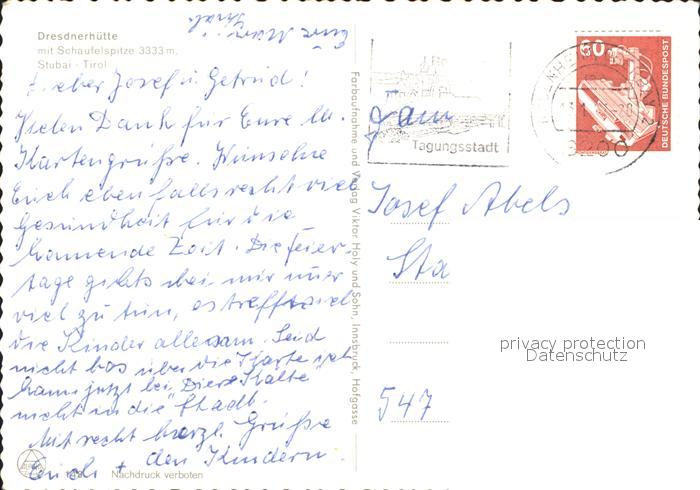 Dresdnerhütte
mit Schaufelspitze 3333 m,
Stubai - Tirol
Lieber Josef u. Getrud!
Vielen Dank für Eure lb.
Kartengrüße. Wünsche
Euch ebenfalls recht viel
Gesundheit für die
kommende Zeit. Die Feier-
tage gibts bei mir immer
viel zu tun, es trefft sich
die Kinder alle sam. Seid
nicht bös über die Karte ich
kann jetzt bei Diese Kälte
nicht in die Stadt.
Mit recht herzl. Grüße
Euch + den Kindern.
Eure
Nachdruck verboten
Farbaufnahme und Verlag Viktor Holy und Sohn, Innsbruck, Hofgasse
Tagungsstadt
60
DEUTSCHE BUNDESPOST
8200
Fam
Josef Abels
Sta
547
privacy protection
Datenschutz